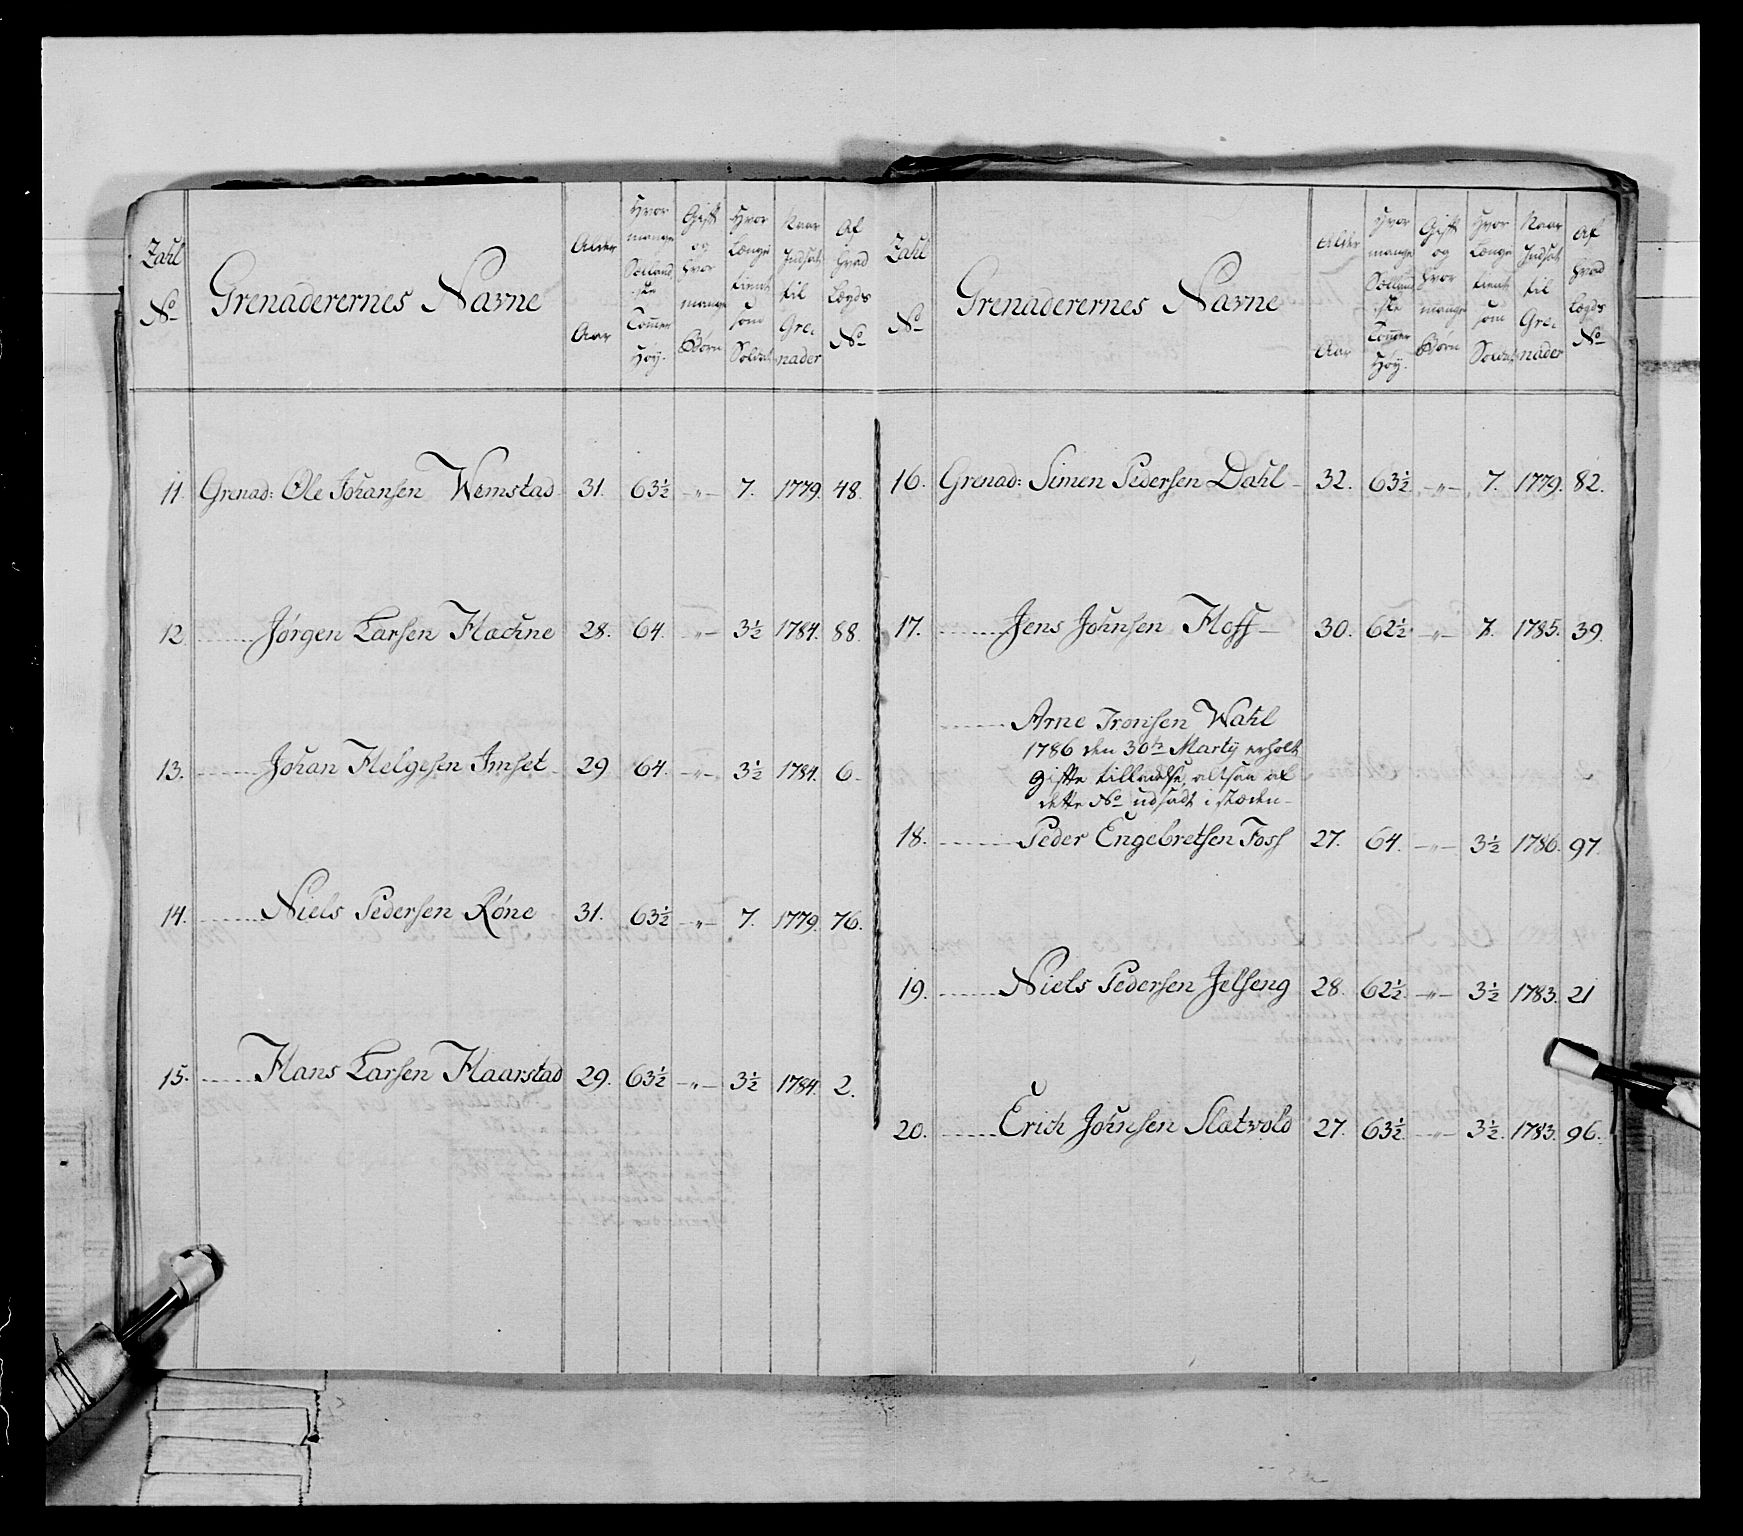 Zahl No
Grenaderernes Navne
Alder Aar
Hvor mange Sælland ske Tommer Høy.
Gift og Hvor mange Børn
Hvor Længe tient som Soldat
Naar Indsat til Gre: nader
Af Hvad Lægds No
11. Grenad: Ole Johansen Wemstad 31. 63½ -„- 7. 1779. 48.
12 Jørgen Larsen Hachne 28. 64. -„- 3½ 1784. 88.
13. Johan Helgesen Imset 29 64. -„- 3½ 1784. 6.
14. Niels Pedersen Røne 31. 63½ -„- 7. 1779. 76.
15. Hans Larsen Haarstad 29. 63½ -„- 3½ 1784. 2.
Zahl No
Grenaderernes Navne
Alder Aar
Hvor mange Sælland ske Tommer Høy.
Gift og Hvor mange Børn
Hvor Længe tient som Soldat
Naar Indsat til Gre: nader
Af Hvad Lægds No
16. Grenad: Simen Pedersen Dahl 32. 63½ -„- 7. 1779. 82.
17. Jens Johnsen Hoff 30. 62½ -„- 7. 1785. 39.
Arne Tronsen Wahl
1786 den 30te Marty erholt
gifte tilladelse, altsaa af
dette No udsadt i stæden
18. Peder Engebretsen Foss 27. 64. -„- 3½ 1786. 97.
19. Niels Pedersen Jelseng 28. 62½ -„- 3½ 1783. 21
20. Erich Johnsen Slætvold 27. 63½ -„- 3½. 1783. 96.